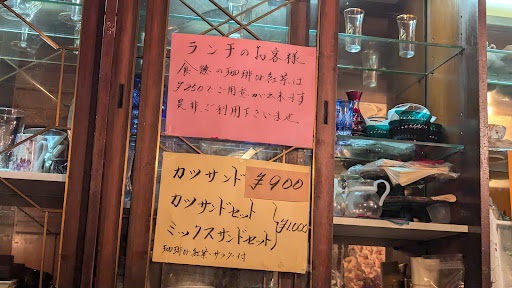 ランチのお客様
食後の珈琲か紅茶は
¥250でご用意が出来ます
是非、ご利用下さいませ
カツサンド ¥900
カツサンドセット
ミックスサンドセット }¥1000
珈琲か紅茶・サラダ・付